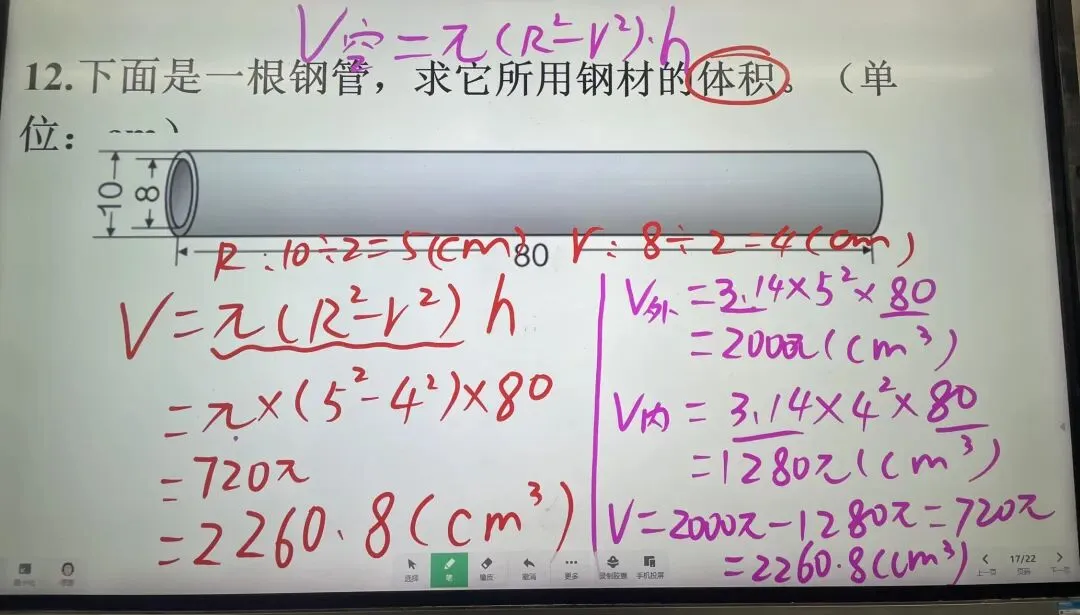 V空=π(R²-r²)·h
12.下面是一根钢管，求它所用钢材的体积。（单
位：
10
8
80
R:10÷2=5(cm)
r:8÷2=4(cm)
V=π(R²-r²)h
=π×(5²-4²)×80
=720π
=2260.8(cm³)
V外=3.14×5²×80
=2000π(cm³)
V内=3.14×4²×80
=1280π(cm³)
V=2000π-1280π=720π
=2260.8(cm³)
选择
笔
橡皮
撤消
更多
录制胶囊
手机投屏
上一页
17/22
页码
下一页